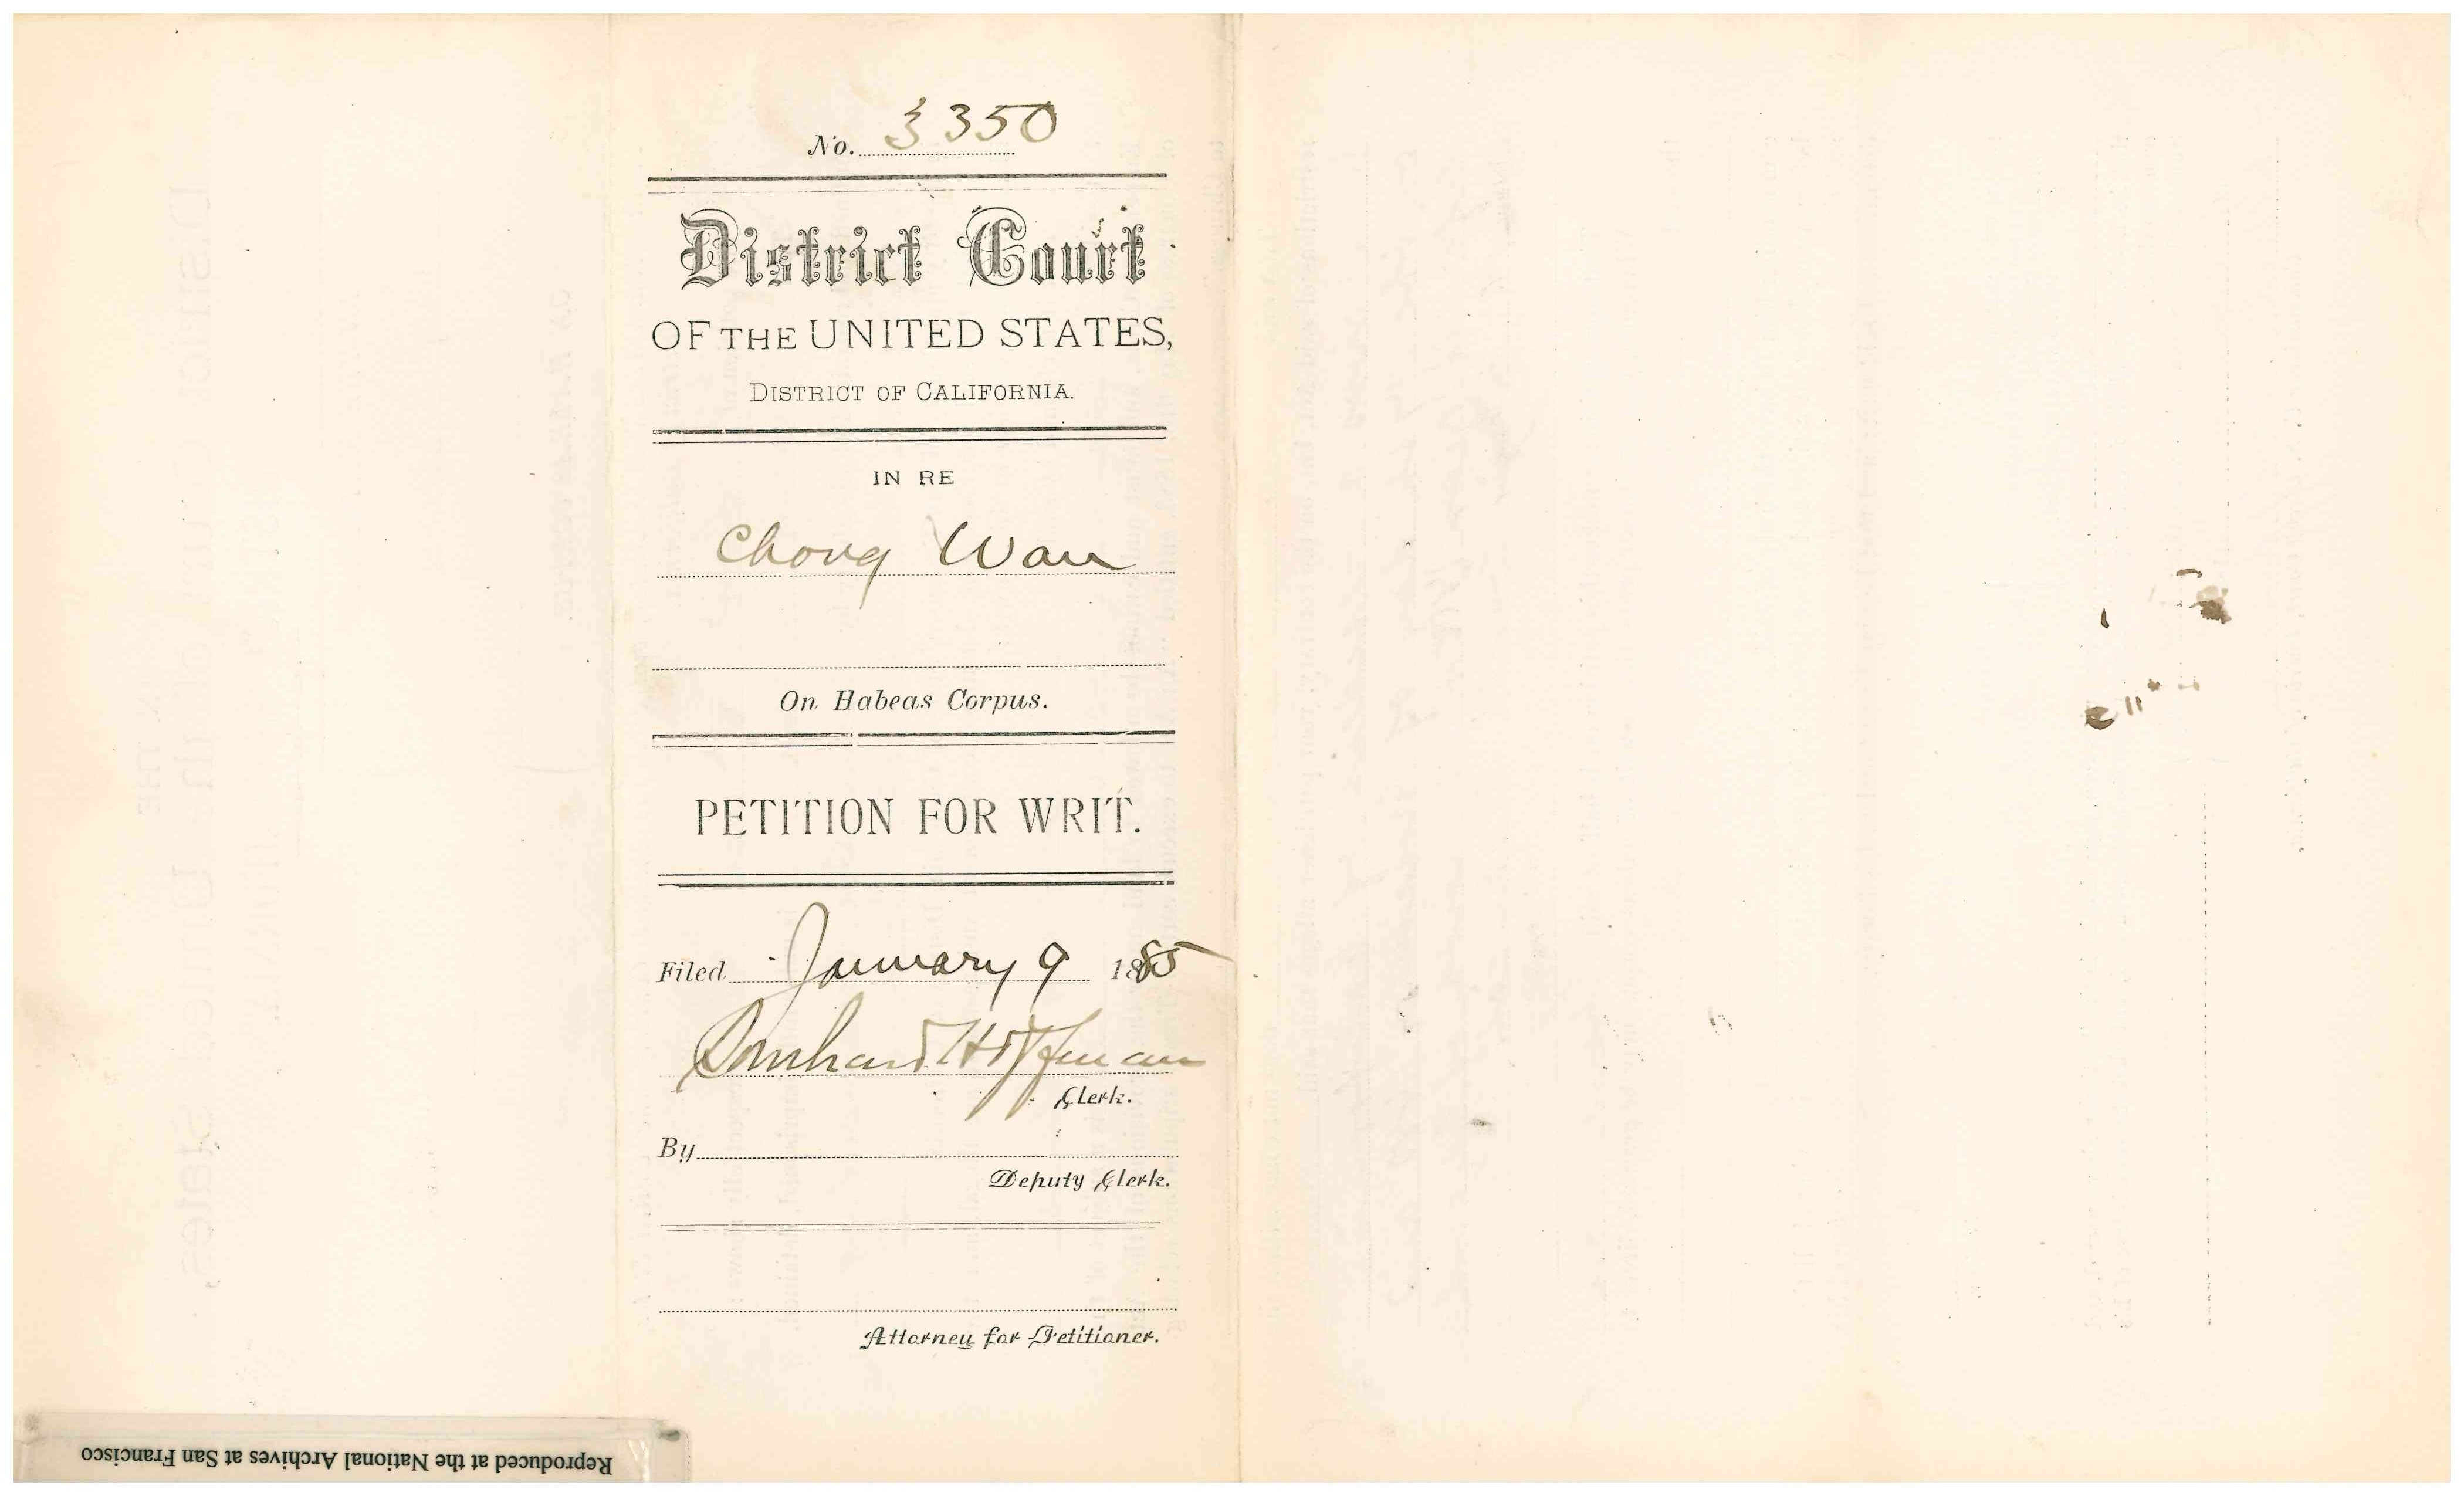 No. 3350
District Court
OF THE UNITED STATES,
DISTRICT OF CALIFORNIA.
IN RE
Chong Wan
On Habeas Corpus.
PETITION FOR WRIT.
Filed January 9 1885
Hoffman
Clerk.
By
Deputy Clerk.
Attorney for Petitioner.
Reproduced at the National Archives at San Francisco